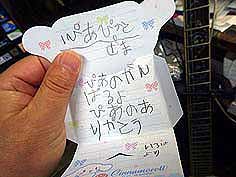 ぴあぴっと
さま
ぴあのがん
ばるよ
ぴあのあ
りがとう
より
Cinnamoroll